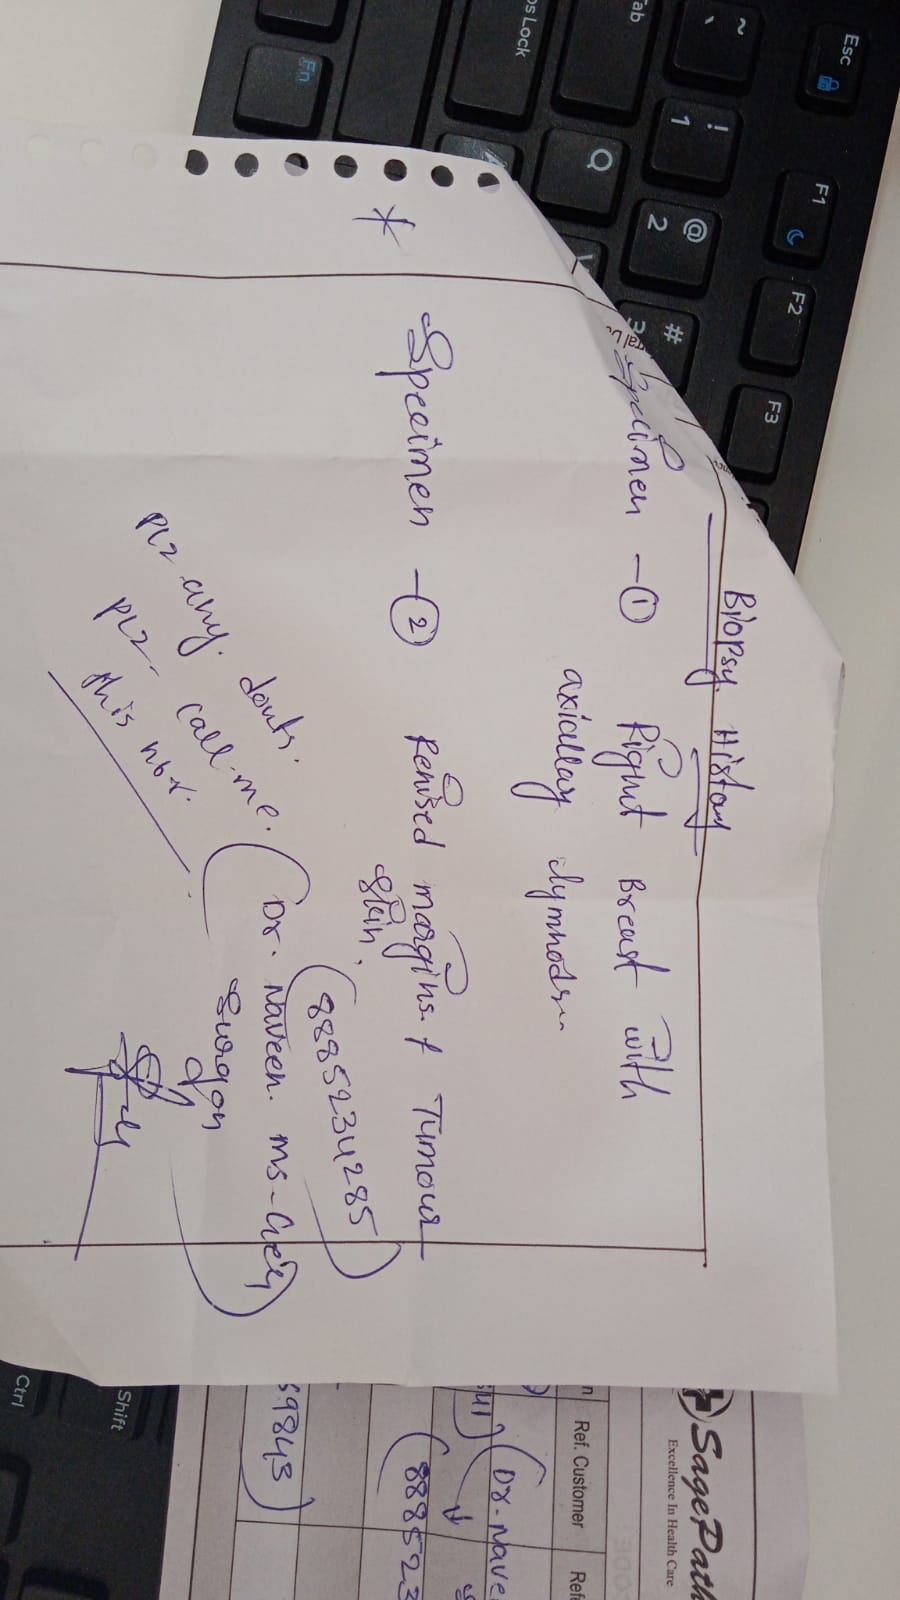 Biopsy History
Specimen - ① Right Breast with
axiallay lymnods
* Specimen - ② Revised margins & Tumour
skin.
(8885234285)
plz any douts.
plz call me.
this nbr.
(Dr. Naveen. ms-Gen
Surgeon)
SagePath
Excellence In Health Care
Ref. Customer
(Dr. Nave
(888523
59843)
Esc
F1
F2
F3
~
`
!
1
@
2
#
3
Q
Fn
Shift
Ctrl